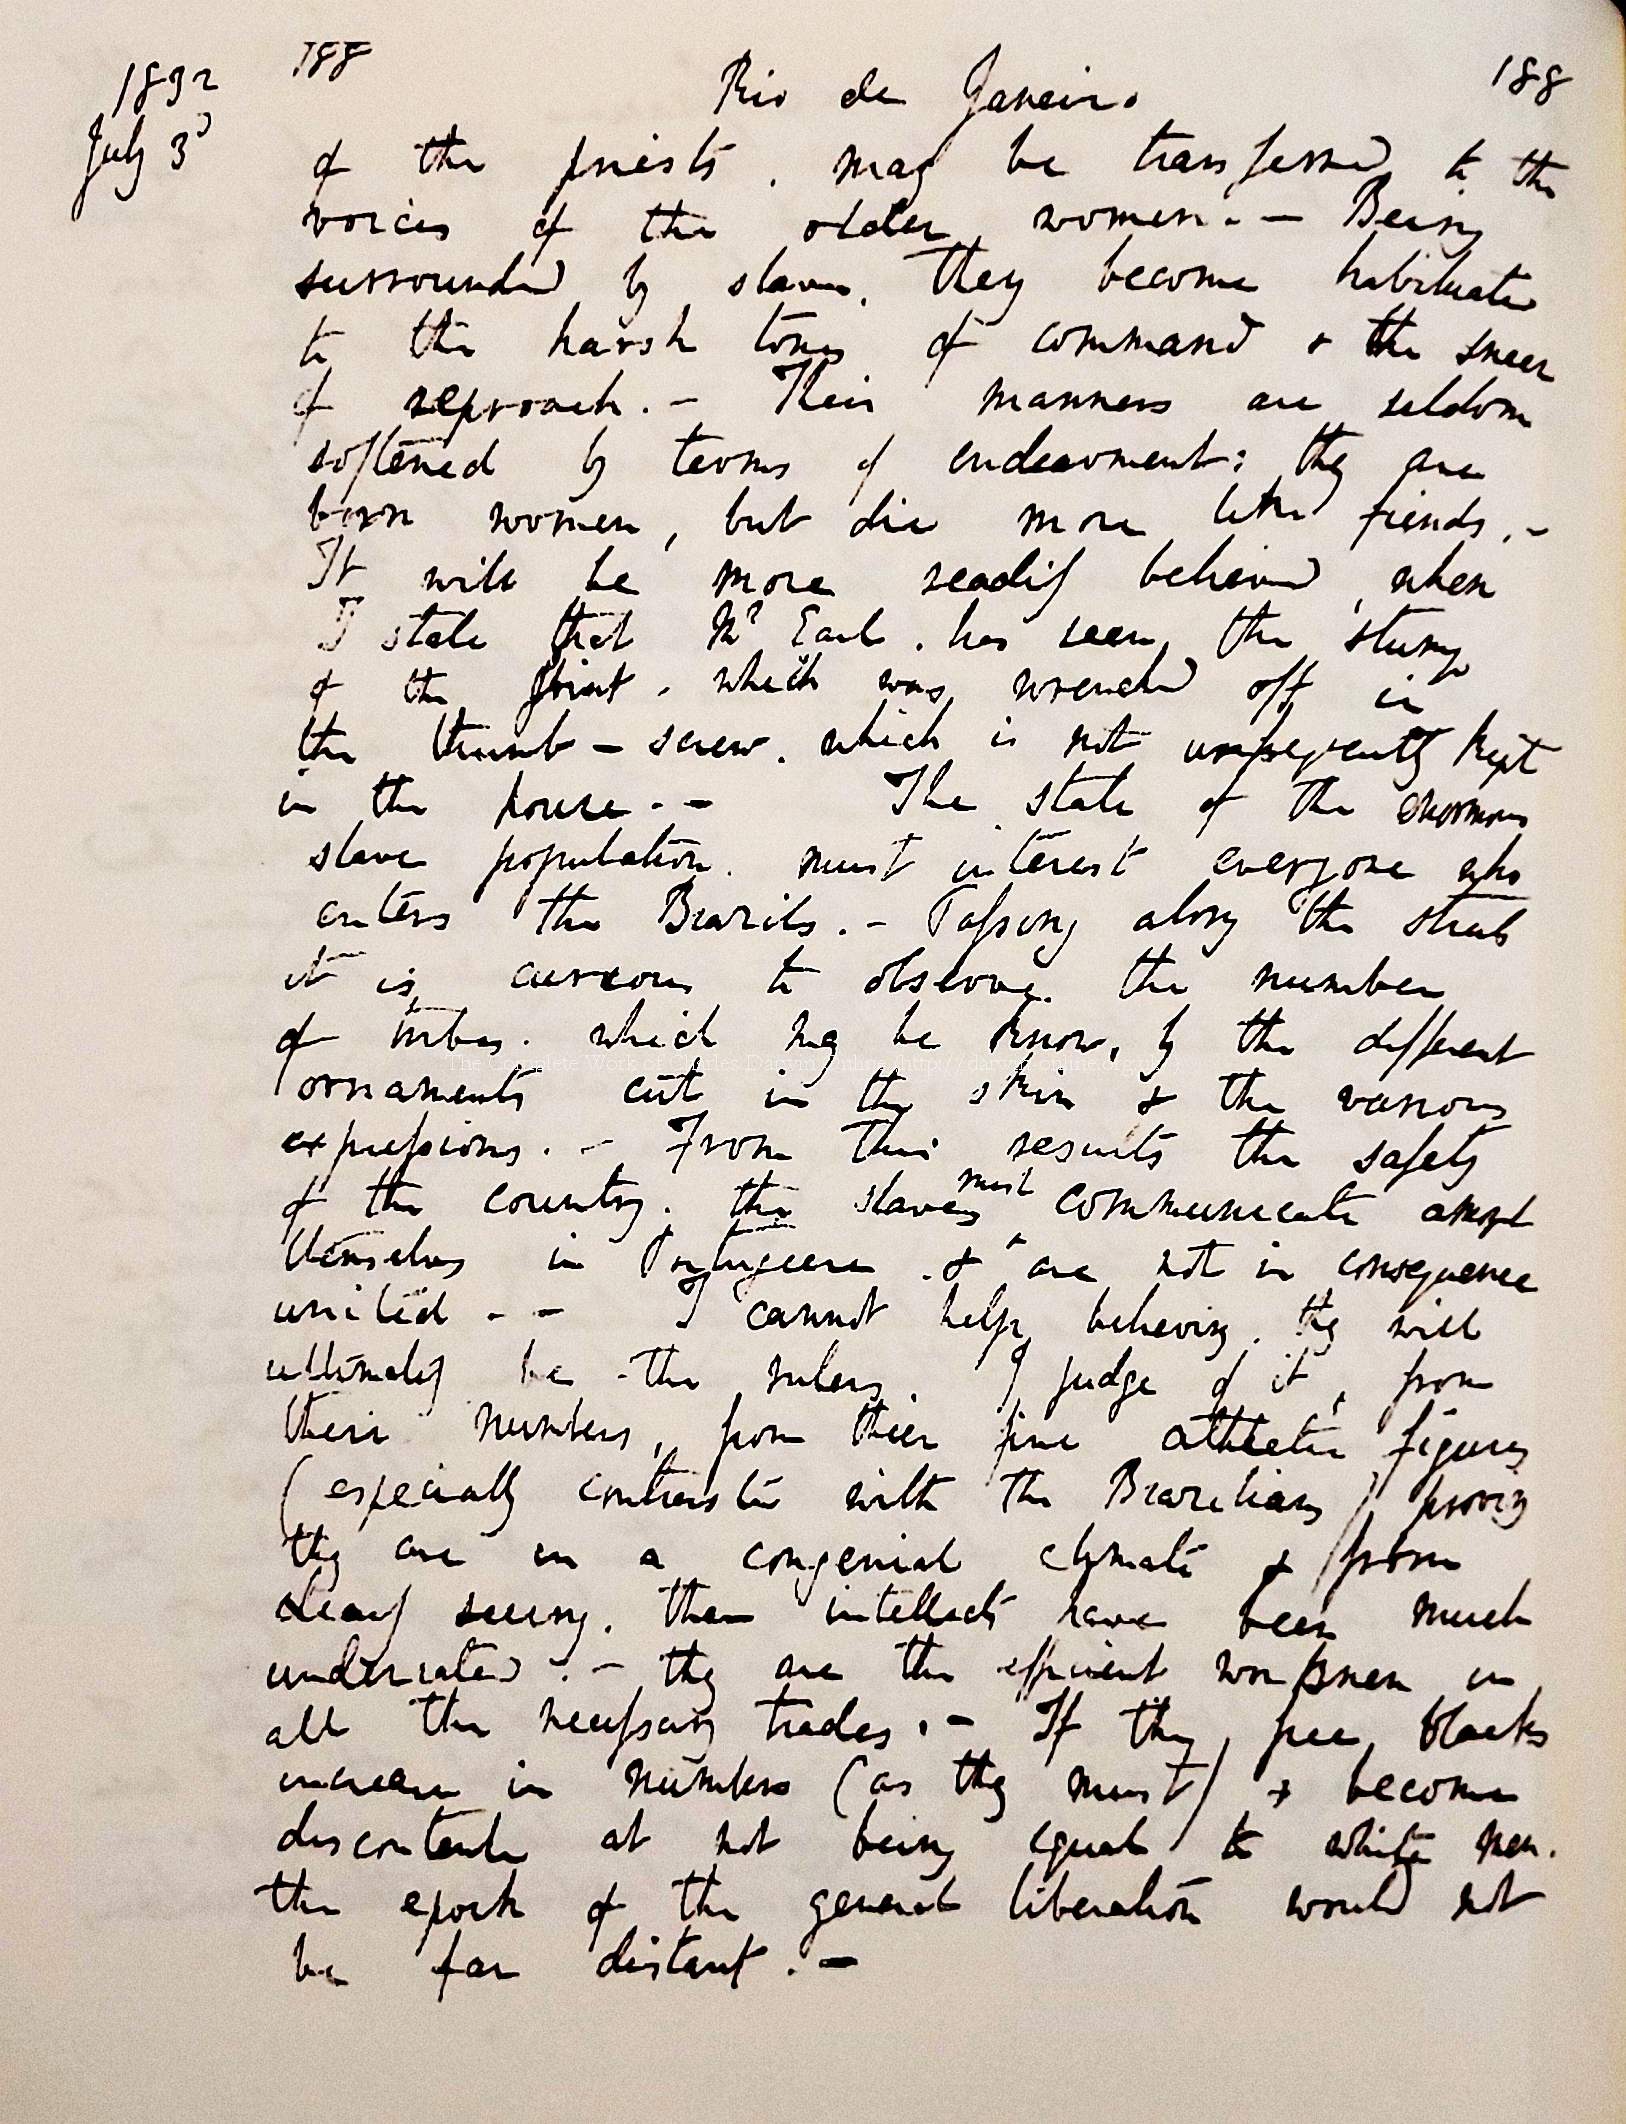 1832
July 3d
188
Rio de Janeiro
188
of the priests, may be transferred to the
voices of the older women. — Being
surrounded by slaves, they become habituated
to the harsh tones of command & the sneer
of reproach. — Their manners are seldom
softened by terms of endearment: they are
born women, but die more like fiends. —
It will be more readily believed, when
I state that Mr Earl. has seen the stump
of the joint, which was wrenched off in
the thumb-screw. which is not unfrequently kept
in the house. — The state of the enormous
slave population. must interest everyone who
enters the Brazils. — Passing along the streets
it is curious to observe the number
of tribes. which may be know, by the different
ornaments cut in the skin & the various
expressions. — From this results the safety
of the country. the slaves must communicate amongst
themselves in Portugeese & are not in consequence
united. — I cannot help believing. they will
ultimately be the rulers. I judge of it, from
their numbers, from thier fine athletic figures
(especially contrasted with the Brazilians) proving
they are in a congenial clymate & from
clearly seeing. their intellects have been much
underrated. — they are the efficient workmen in
all the necessary trades. — If the free blacks
increase in numbers (as they must) & become
discontented at not being equal to white men.
the epoch of the general liberation would not
be far distant. —